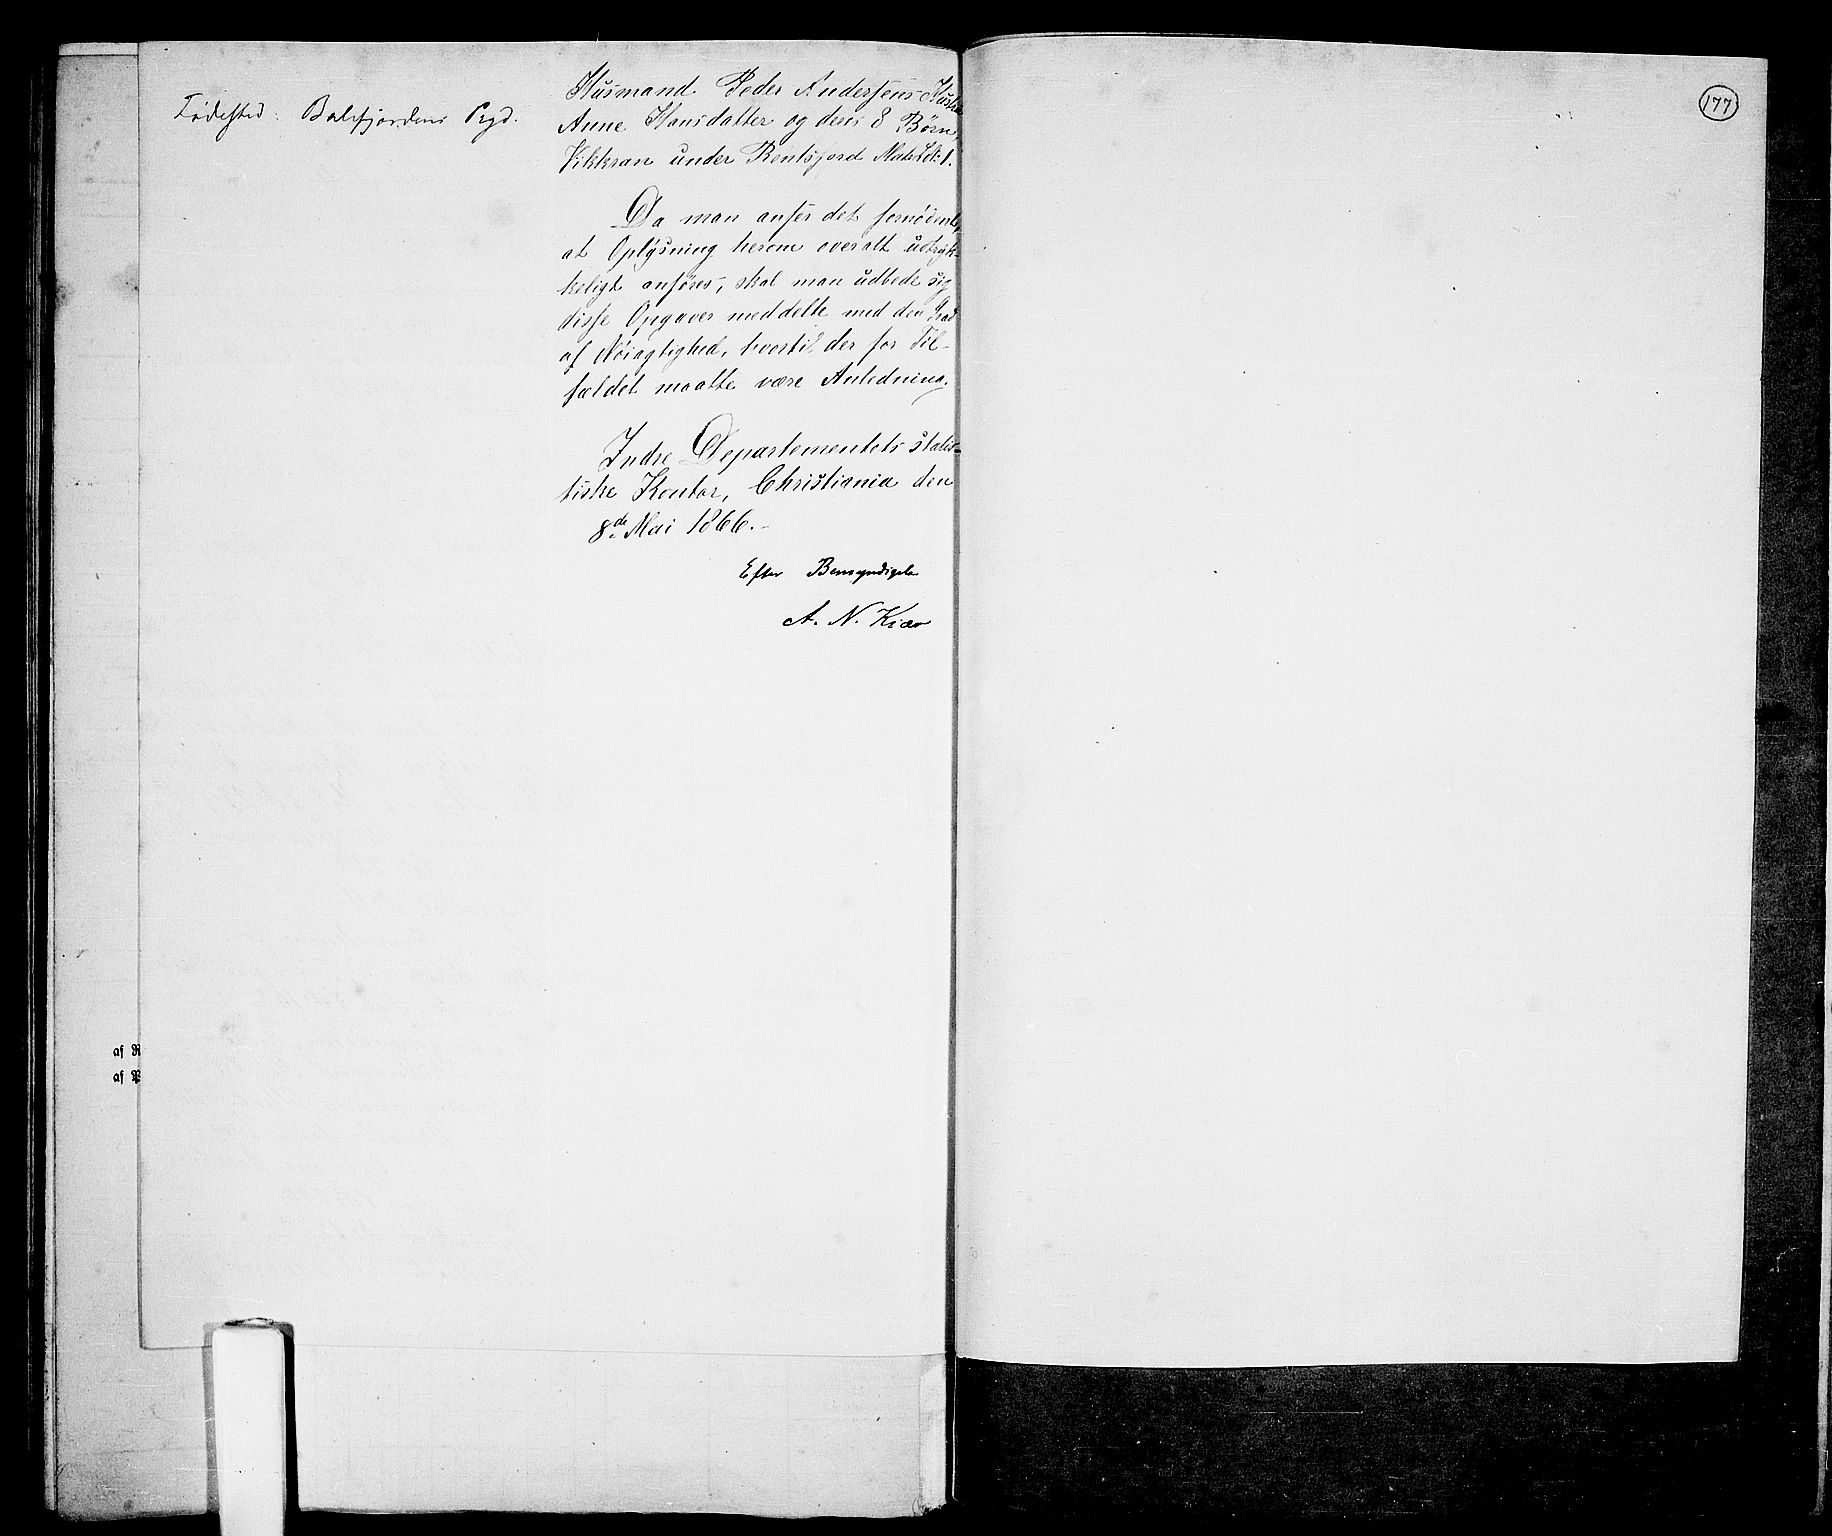 177
Fødested: Balsfjordens Prgd.
Husmand Peder Andersens Hustru
Anne Hansdatter og deres 8 Børn,
Vikkran under Bentsjord Mat. Lit: 1.
Da man anser det fornødent,
at Oplysning herom overalt udtryk-
keligt anføres, skal man udbede sig
disse Opgaver meddelte med den Grad
af Nøiagtighed, hvortil der for Til-
fældet maatte være Anledning.
Indre Departementets statis-
tiske Kontor, Christiania den
8de Mai 1866.-
Efter Bemyndigelse
A. N. Kiær
af R
af P